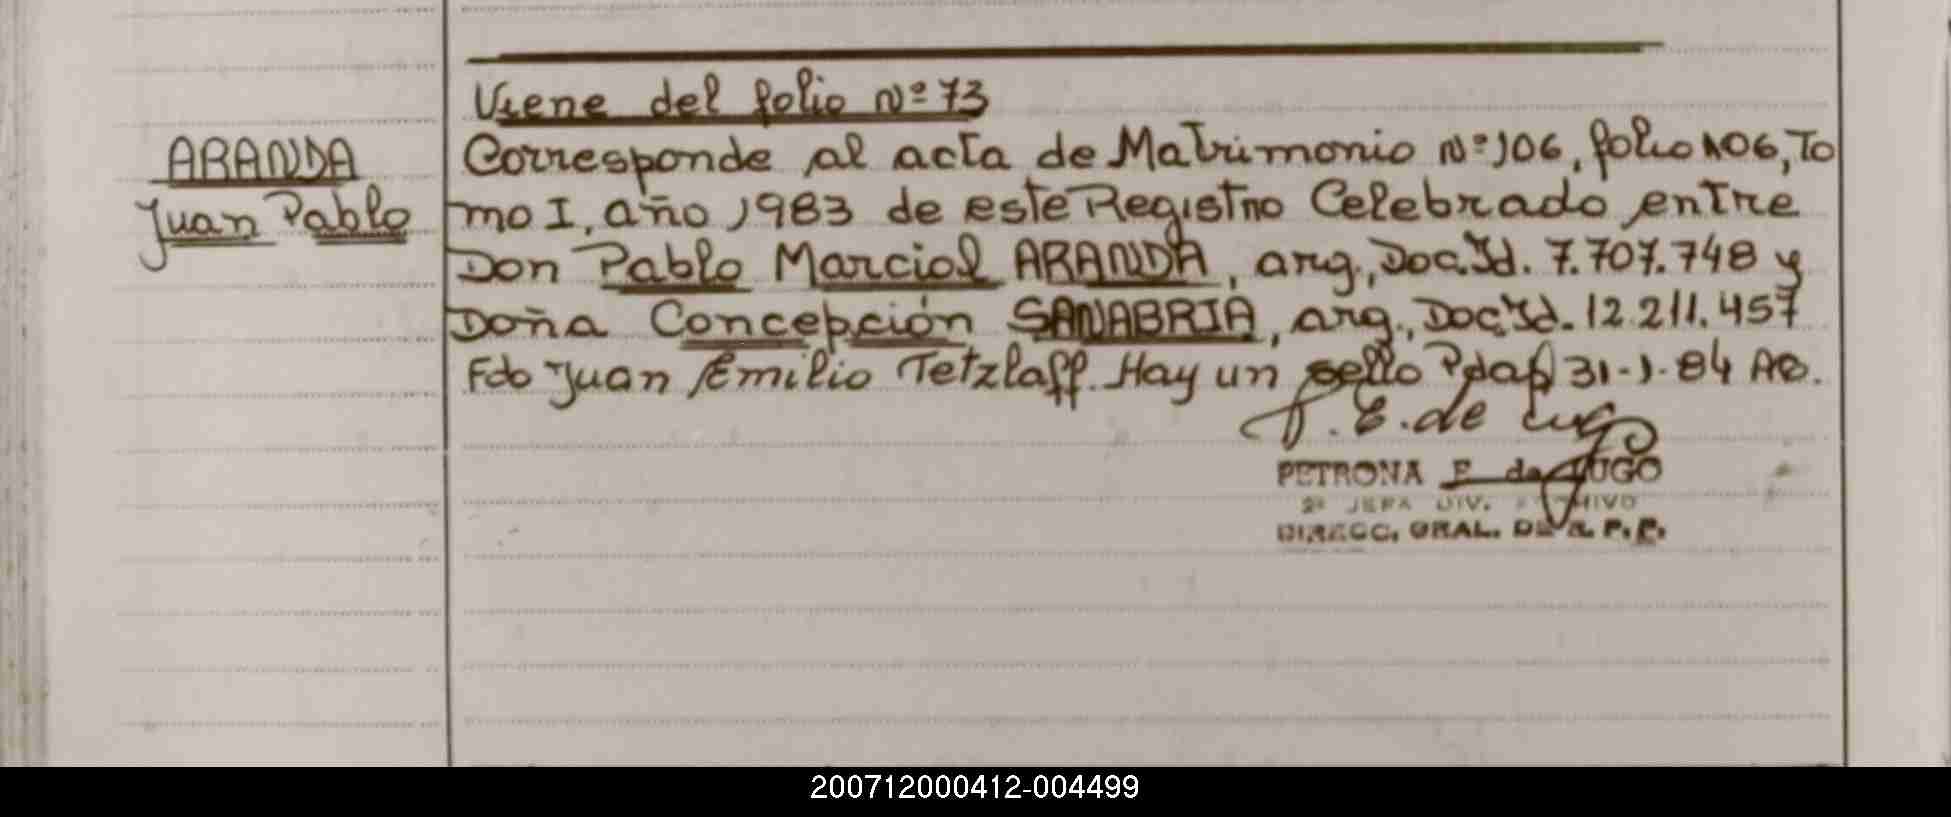 Viene del folio Nº 73
ARANDA
Juan Pablo
Corresponde al acta de Matrimonio Nº 106, folio 106, To
mo I, año 1983 de este Registro Celebrado entre
Don Pablo Marcial ARANDA, arg., Doc. Id. 7.707.748 y
Doña Concepción SANABRIA, arg., Doc. Id. 12.211.457
Fdo Juan Emilio Tetzlaff. Hay un sello Pdas 31-1-84 AB.
P. E. de Lugo
PETRONA E. de LUGO
2ª JEFA DIV. ARCHIVO
DIRECC. GRAL. DE R. P. P.
200712000412-004499